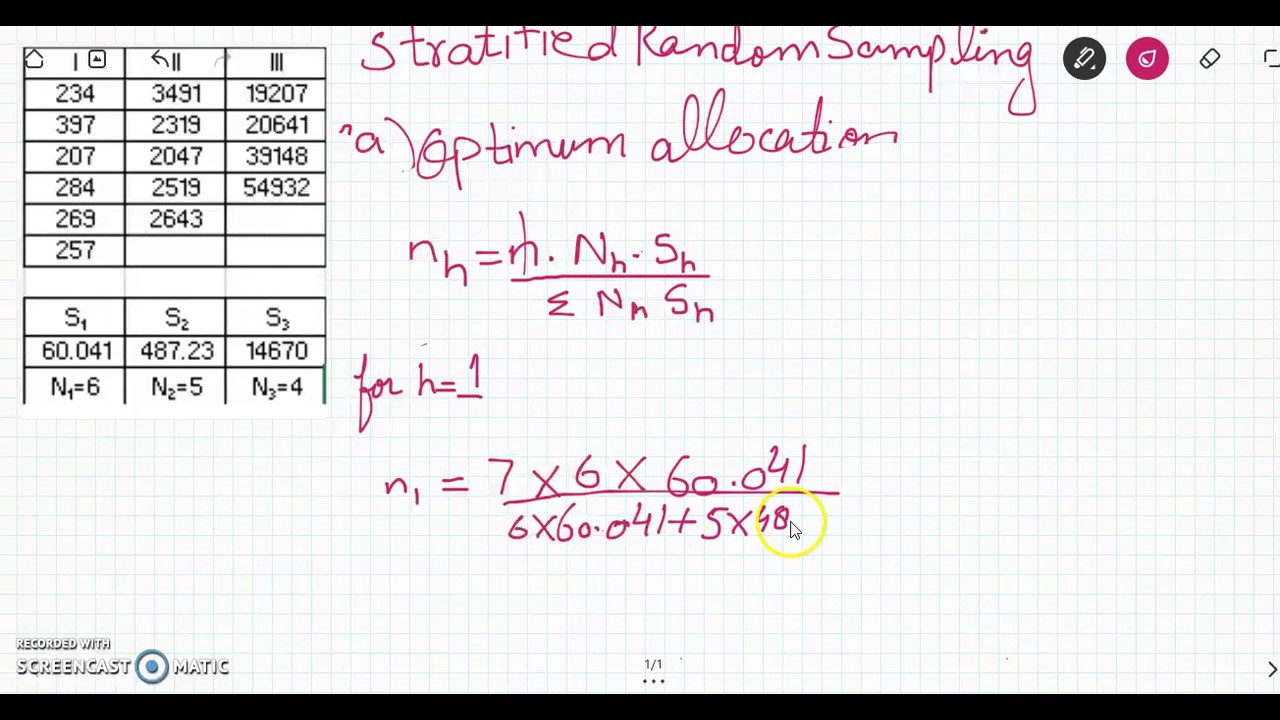 I II III
234 3491 19207
397 2319 20641
207 2047 39148
284 2519 54932
269 2643
257
S₁ S₂ S₃
60.041 487.23 14670
N₁=6 N₂=5 N₃=4
Stratified Random Sampling
a) Optimum allocation
nₕ = n. Nₕ. Sₕ
Σ Nₕ Sₕ
for h=1
n₁ = 7 × 6 × 60.041
6×60.041+5×48
RECORDED WITH
SCREENCAST MATIC
1/1